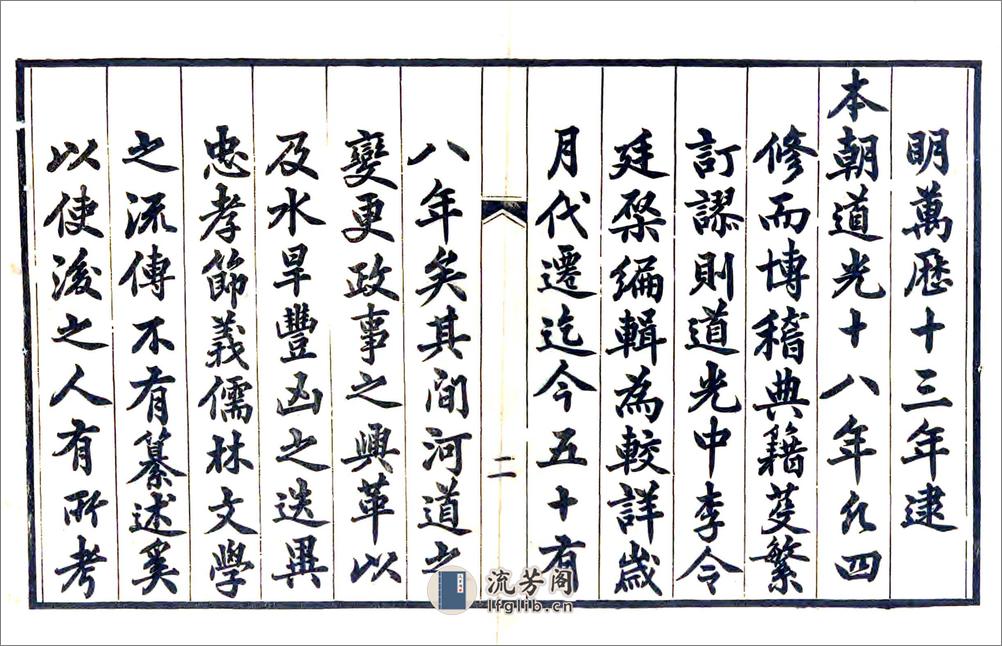 明萬歷十三年逮
本朝道光十八年凡四
修而博稽典籍芟繁
訂謬則道光中李令
廷棨編輯為較詳歲
月代遷迄今五十有
二
八年矣其间河道之
變更政事之興革以
及水旱豐凶之迭異
忠孝節義儒林文學
之流傳不有纂述奚
以使後之人有所考
流芳阁
lfglib.cn